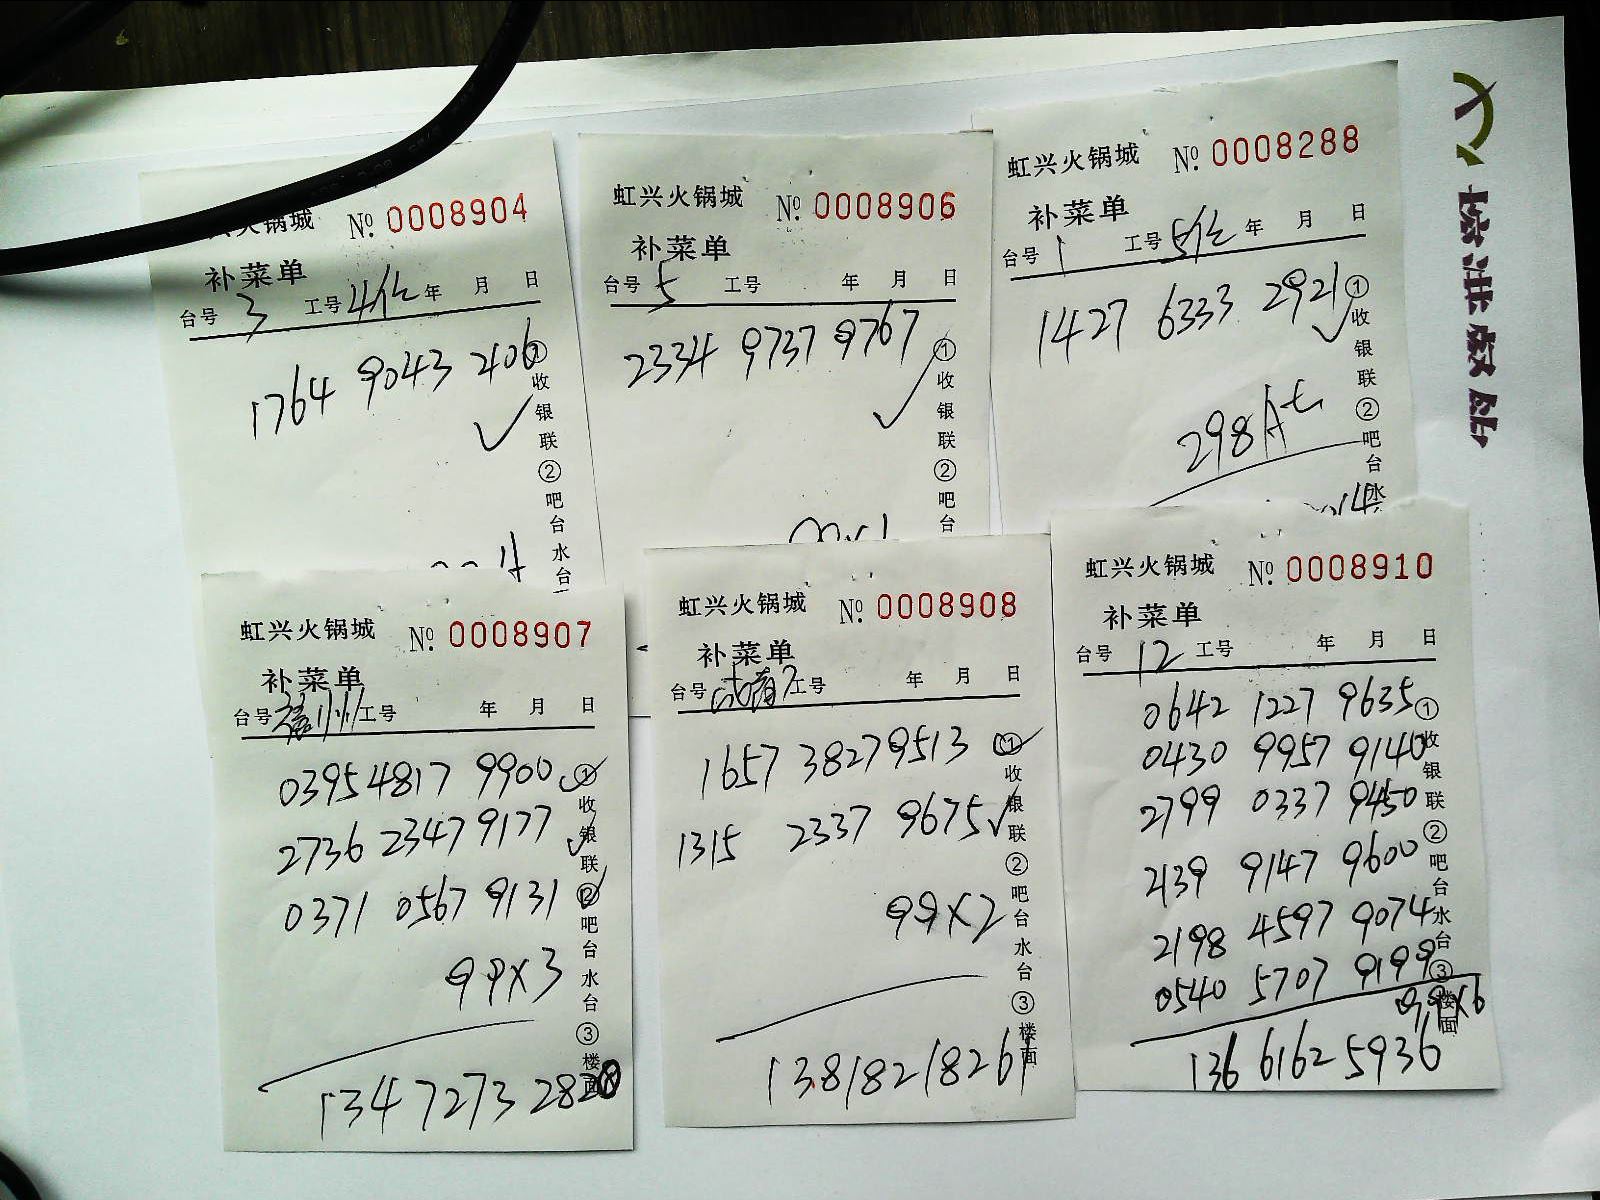 兴火锅城 No. 0008904
补菜单
台号 3 工号 4位 年 月 日
1764 9043 2406
①收银联②吧台水台
虹兴火锅城 No. 0008906
补菜单
台号 5 工号 年 月 日
2334 9737 9767
①收银联②吧台
虹兴火锅城 No. 0008288
补菜单
台号 1 工号 5位 年 月 日
1427 6333 2921
298
①收银联②吧台水
虹兴火锅城 No. 0008907
补菜单
台号 工号 年 月 日
0395 4817 9900
2736 2347 9177
0371 0567 9131
99X3
1347273282
①收银联②吧台水台③楼面
虹兴火锅城 No. 0008908
补菜单
台号 工号 年 月 日
1657 3827 9513
1315 2337 9675
99X2
13818218261
①收银联②吧台水台③楼面
虹兴火锅城 No. 0008910
补菜单
台号 12 工号 年 月 日
0642 1227 9635
0430 9957 9140
2799 0337 9450
2139 9147 9600
2198 4597 9074
0540 5707 9199
99X6
136 6162 5936
①收银联②吧台水台③楼面